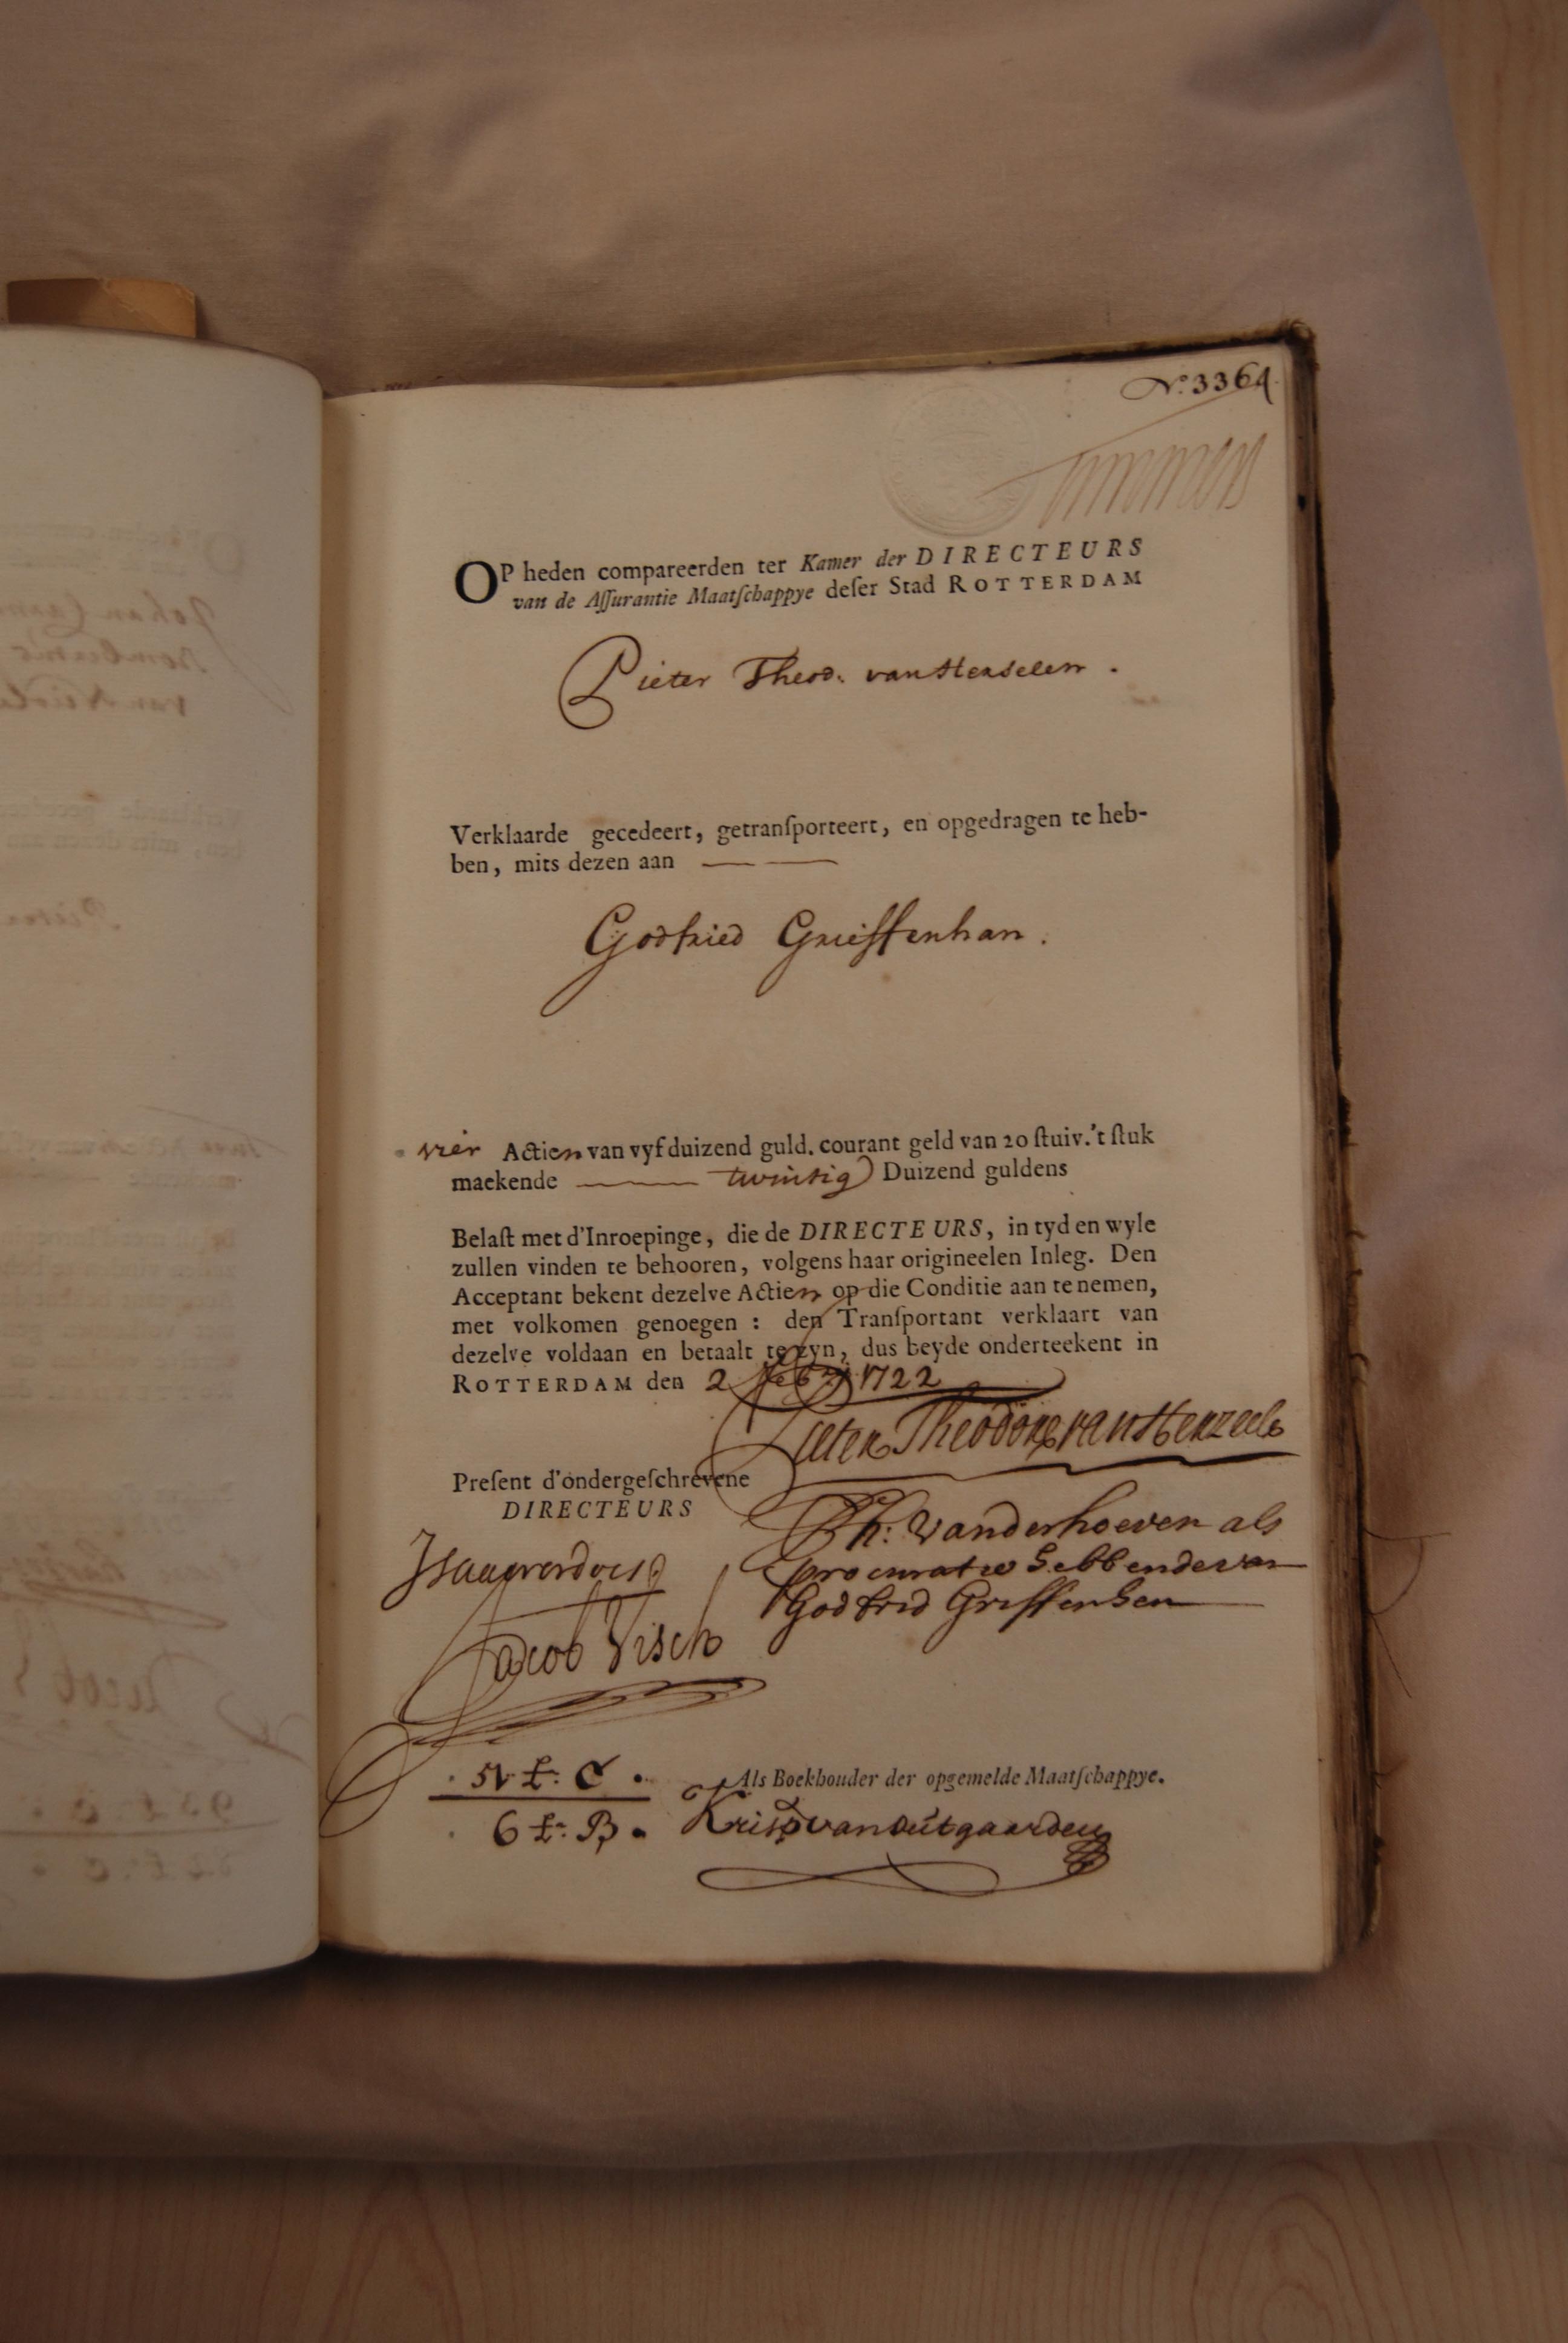 No. 3364.
OP heden compareerden ter Kamer der DIRECTEURS
van de Aſſurantie Maatſchappye deſer Stad ROTTERDAM
Pieter Theod: van Henselen.
Verklaarde gecedeert, getranſporteert, en opgedragen te heb-
ben, mits dezen aan
Godfried Grieffenhan.
vier Actien van vyf duizend guld. courant geld van 20 ſtuiv. 't ſtuk
maekende twintig Duizend guldens
Belaſt met d'Inroepinge, die de DIRECTEURS, in tyd en wyle
zullen vinden te behooren, volgens haar origineelen Inleg. Den
Acceptant bekent dezelve Actien op die Conditie aan te nemen,
met volkomen genoegen : den Tranſportant verklaart van
dezelve voldaan en betaalt te zyn, dus beyde onderteekent in
ROTTERDAM den 2 feb 1722
Pieter Theodore van Henzeele
Preſent d'ondergeſchrevene
DIRECTEURS
Th: vanderhoeven als
procuratie hebbende van
Godfrid Griffenhen
Jacob Visch
Als Boekhouder der opgemelde Maatſchappye.
6 £: B.
Kris van Outgaarden